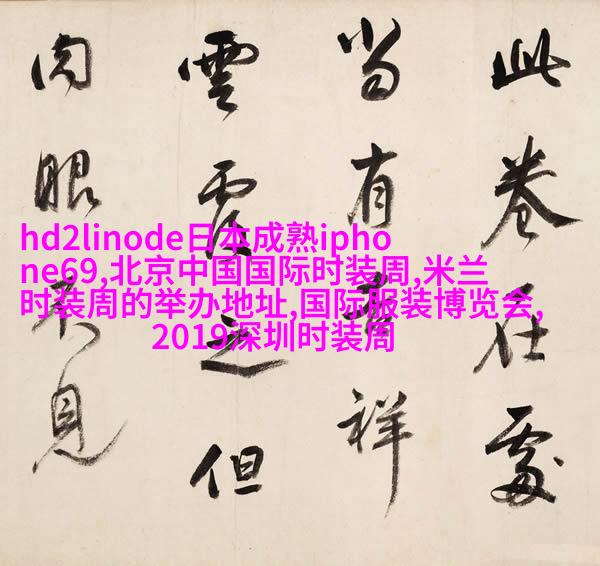 此卷任處
当有吉祥
雲覆之但
肉眼不見
hd2linode日本成熟ipho
ne69,北京中国国际时装周,米兰
时装周的举办地址,国际服装博览会,
2019深圳时装周